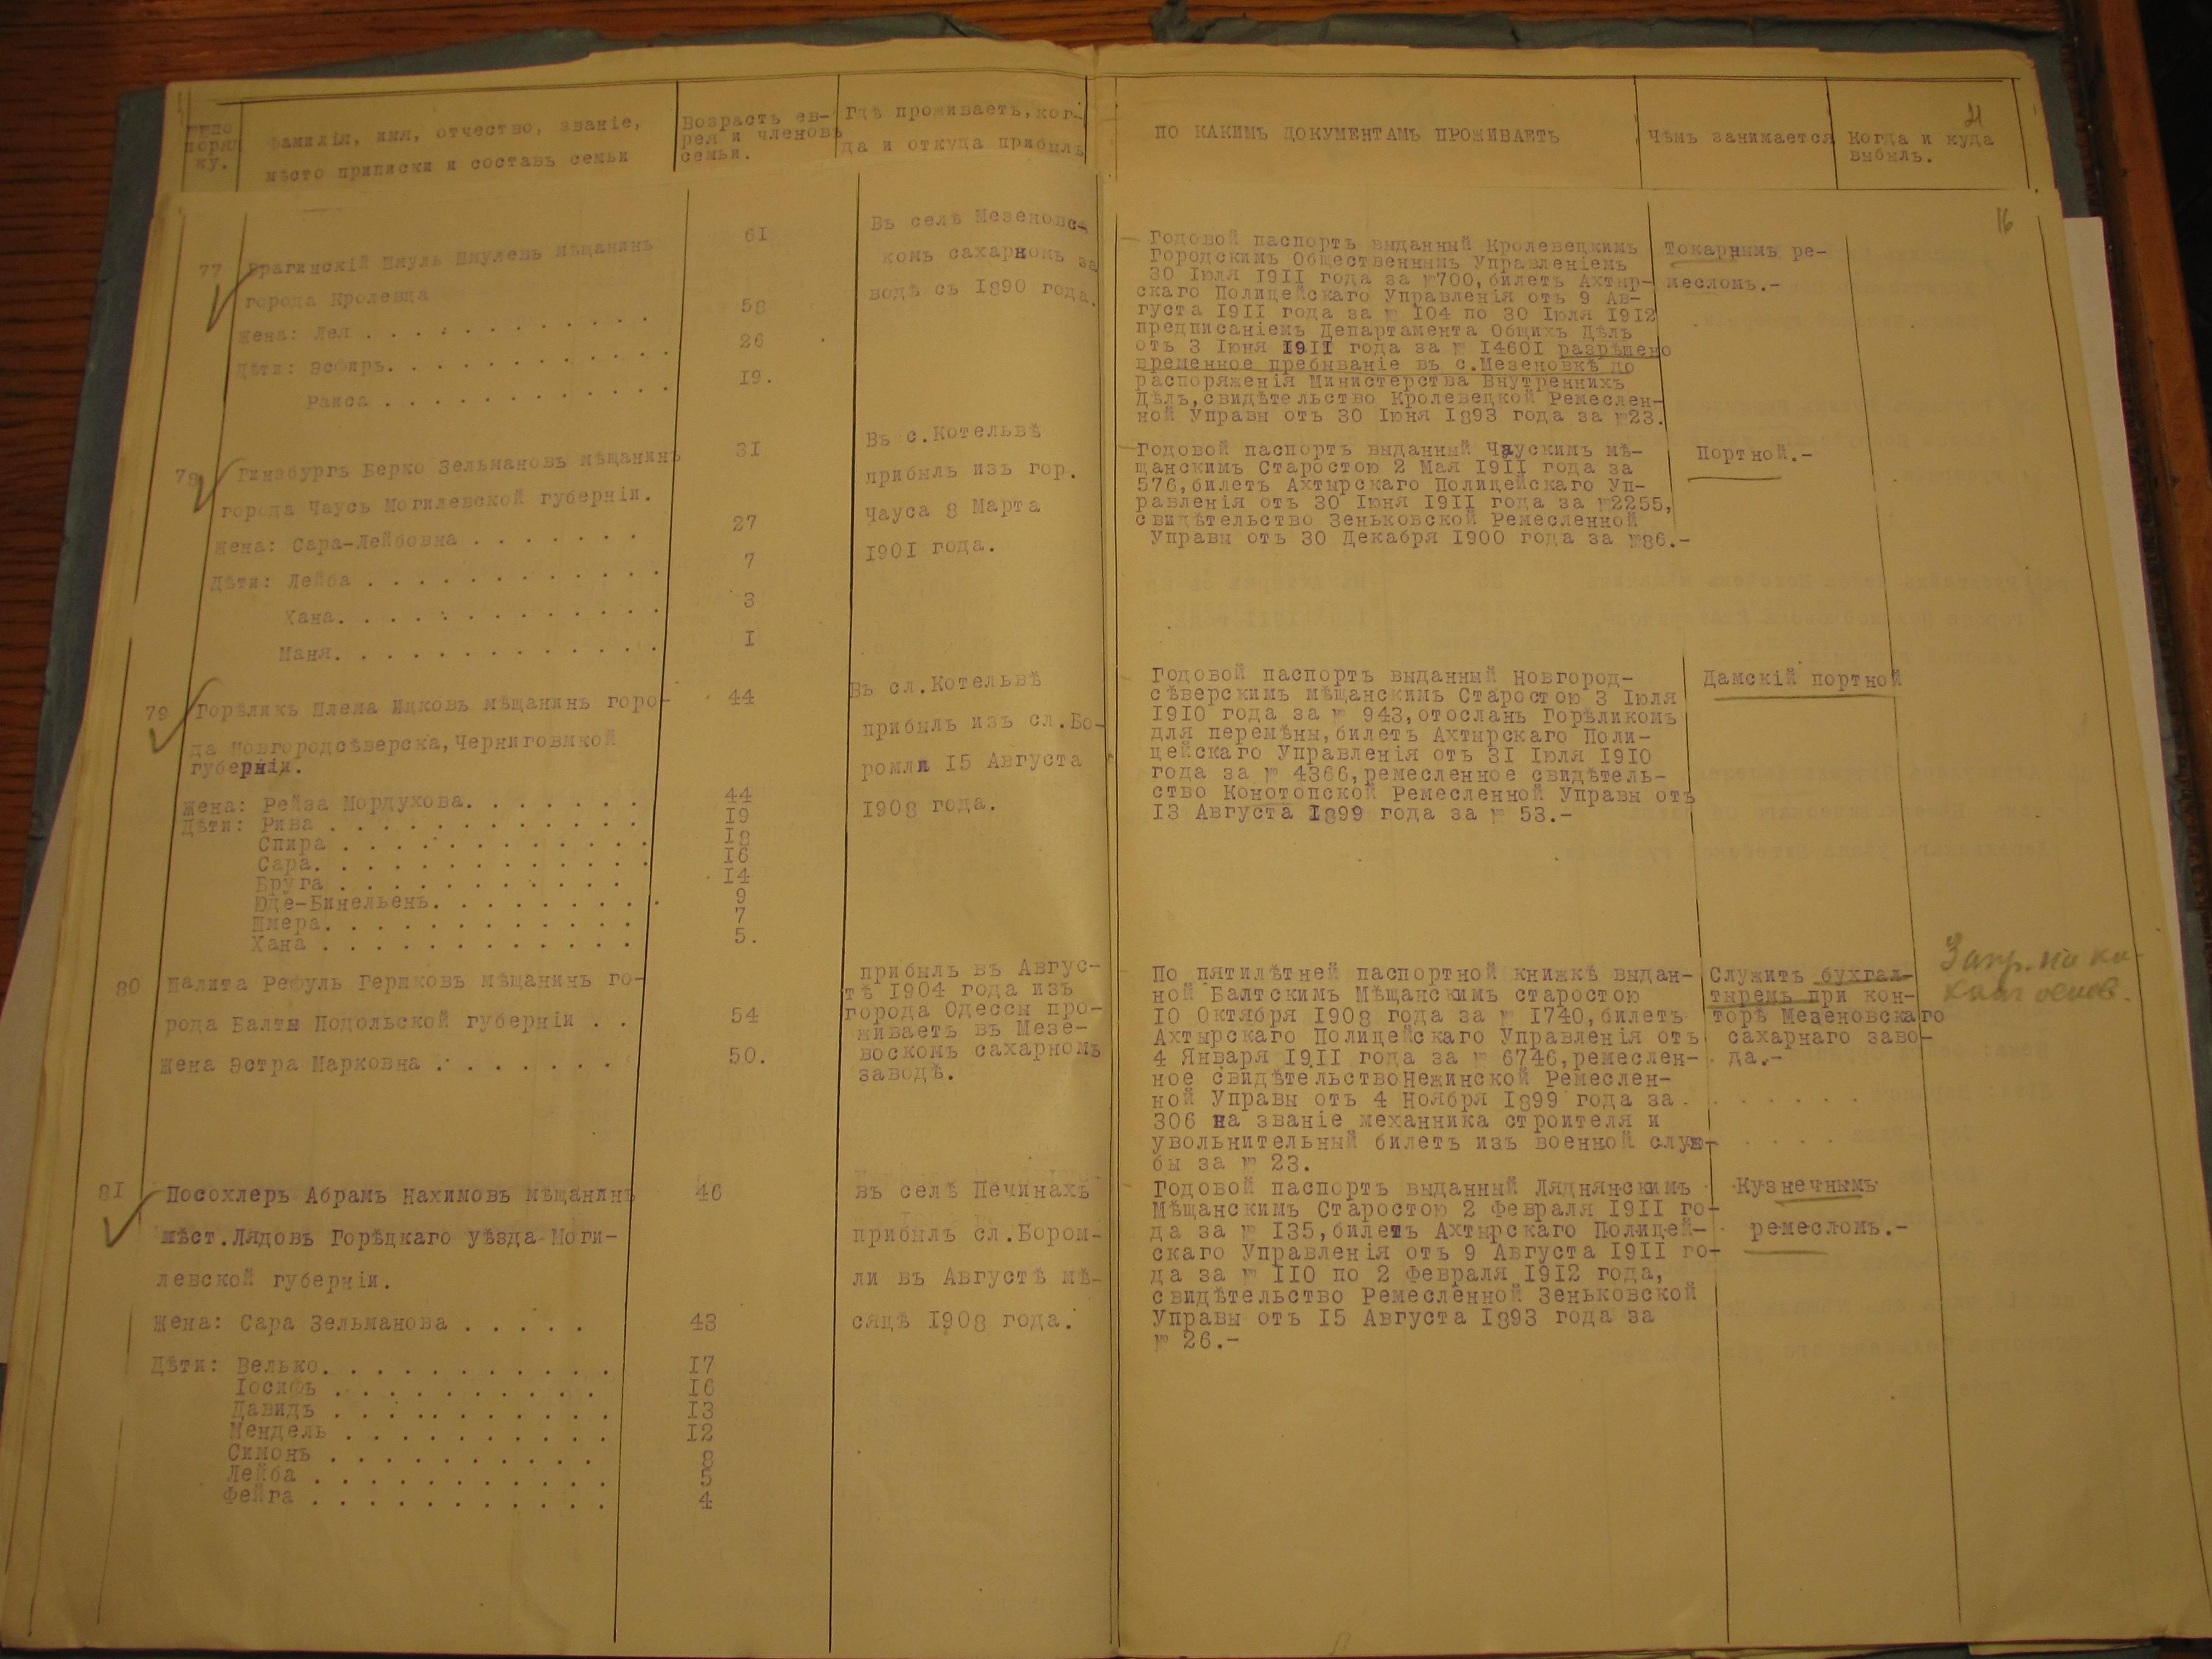 №№по
поряд
ку.
Фамилія, имя, отчество, званіе,
мѣсто приписки и составъ семьи
Возрастъ ев-
рея и членовъ
семьи.
Гдѣ проживаетъ, ког-
да и откуда прибылъ
ПО КАКИМЪ ДОКУМЕНТАМЪ ПРОЖИВАЕТЪ
Чѣмъ занимается
Когда и куда
выбылъ.
21
16
77
Брагинскій Шмуль Шмулевъ мѣщанинъ
города Кролевца
Жена: Лея . . . . . . . . . . . .
Дѣти: Эсфирь. . . . . . . . . . . .
Раиса . . . . . . . . . . . .
61
58
26
19.
Въ селѣ Мезеновс-
комъ сахарномъ за
водѣ съ 1890 года.
Годовой паспортъ выданный Кролевецкимъ
Городскимъ Общественнымъ Управленіемъ
30 Іюля 1911 года за №700, билетъ Ахтыр-
скаго Полицейскаго Управленія отъ 9 Ав-
густа 1911 года за № 104 по 30 Іюля 1912
предписаніемъ Департамента Общихъ Дѣлъ
отъ 3 Іюня 1911 года за № 14601 разрѣшено
временное пребываніе въ с.Мезеновкѣ до
распоряженія Министерства Внутреннихъ
Дѣлъ, свидѣтельство Кролевецкой Ремеслен-
ной Управы отъ 30 Іюня 1893 года за №23.
Токарнымъ ре-
месломъ.-
78
Гинзбургъ Берко Зельмановъ мѣщанинъ
города Чаусъ Могилевской губерніи.
Жена: Сара-Лейбовна . . . . . . .
Дѣти: Лейба . . . . . . . . . . . .
Хана. . . . . . . . . . . . .
Маня. . . . . . . . . . . . .
31
27
7
3
1
Въ с.Котельвѣ
прибылъ изъ гор.
Чауса 8 Марта
1901 года.
Годовой паспортъ выданный Чаускимъ мѣ-
щанскимъ Старостою 2 Мая 1911 года за
576, билетъ Ахтырскаго Полицейскаго Уп-
равленія отъ 30 Іюня 1911 года за №2255,
свидѣтельство Зеньковской Ремесленной
Управы отъ 30 Декабря 1900 года за №86.-
Портной.-
79
Горѣликъ Шлема Ицковъ мѣщанинъ горо-
да Новгородсѣверска, Черниговмкой
губерніи.
Жена: Рейза Мордухова. . . . . . .
Дѣти: Рива . . . . . . . . . . . .
Спира . . . . . . . . . . . .
Сара. . . . . . . . . . . . .
Бруга . . . . . . . . . . . .
Юде-Бинельень. . . . . . . . .
Шмера. . . . . . . . . . . .
Хана . . . . . . . . . . . . .
44
44
19
18
16
14
9
7
5.
Въ сл.Котельвѣ
прибылъ изъ сл.Бо-
ромли 15 Августа
1908 года.
Годовой паспортъ выданный Новгород-
сѣверскимъ мѣщанскимъ Старостою 3 Іюля
1910 года за № 943, отосланъ Горѣликомъ
для перемѣны, билетъ Ахтырскаго Поли-
цейскаго Управленія отъ 31 Іюля 1910
года за № 4366, ремесленное свидѣтель-
ство Конотопской Ремесленной Управы отъ
13 Августа 1899 года за № 53.-
Дамскій портной
80
Шалита Рефуль Герцковъ мѣщанинъ го-
рода Балты Подольской губерніи . .
Жена Эстра Марковна . . . . . . .
54
50.
прибылъ въ Авгус-
тѣ 1904 года изъ
города Одессы про-
живаетъ въ Мезе-
воскомъ сахарномъ
заводѣ.
По пятилѣтней паспортной книжкѣ выдан-
ной Балтскимъ Мѣщанскимъ старостою
10 Октября 1908 года за № 1740, билетъ
Ахтырскаго Полицейскаго Управленія отъ
4 Января 1911 года за № 6746, ремеслен-
ное свидѣтельствоНежинской Ремеслен-
ной Управы отъ 4 Ноября 1899 года за
306 на званіе механника строителя и
увольнительный билетъ изъ военной служ-
бы за № 23.
Служитъ бухгал-
тыремъ при кон-
торѣ Мезеновскаго
сахарнаго заво-
да.-
81
Посохлеръ Абрамъ Нахимовъ мѣщанинъ
мѣст.Лядовъ Горѣцкаго уѣзда Моги-
левской губерніи.
Жена: Сара Зельманова . . . . .
Дѣти: Велько. . . . . . . . . . .
Іосифъ . . . . . . . . . . .
Давидъ . . . . . . . . . . .
Мендель . . . . . . . . . .
Симонъ . . . . . . . . . . .
Лейба . . . . . . . . . . . .
Фейга . . . . . . . . . . . .
46
43
17
16
13
12
8
5
4
въ селѣ Печинахъ
прибылъ сл.Бором-
ли въ Августѣ мѣ-
сяцѣ 1908 года.
Годовой паспортъ выданный Ляднянскимъ
Мѣщанскимъ Старостою 2 Февраля 1911 го-
да за № 135, билетъ Ахтырскаго Полицей-
скаго Управленія отъ 9 Августа 1911 го-
да за № 110 по 2 Февраля 1912 года,
свидѣтельство Ремесленной Зеньковской
Управы отъ 15 Августа 1893 года за
№ 26.-
Кузнечнымъ
ремесломъ.-